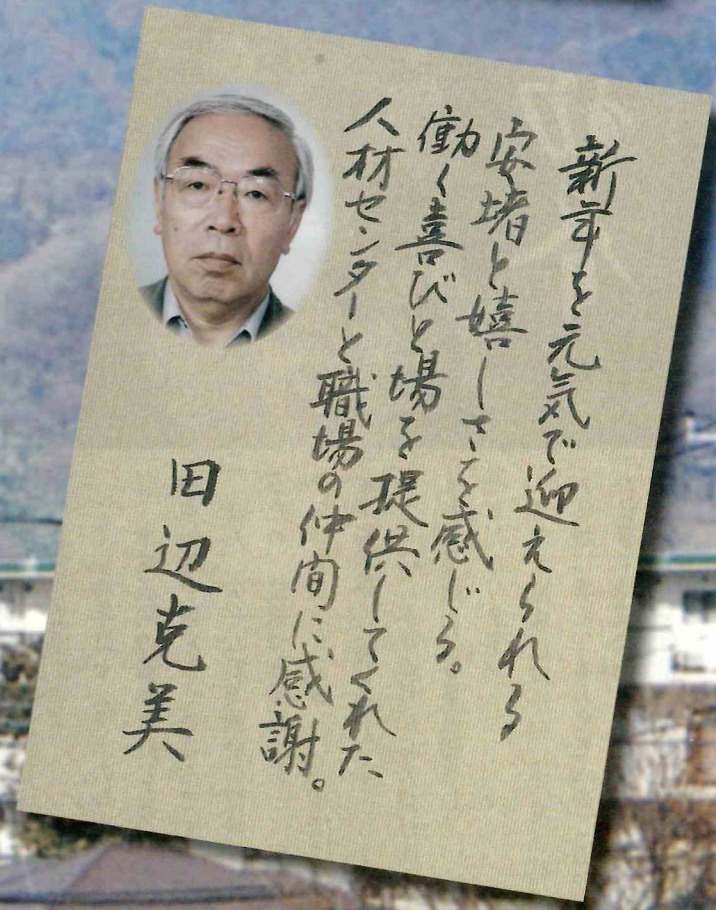 新年を元気で迎えられる
安堵と嬉しさを感じる。
働く喜びと場を提供してくれた、
人材センターと職場の仲間に感謝。
田辺克美